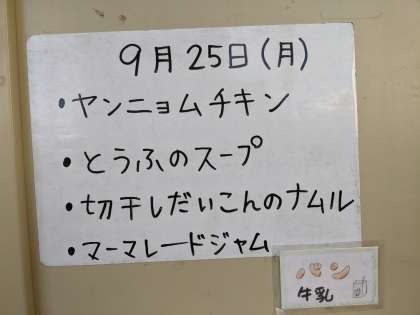 9月25日(月)
・ヤンニョムチキン
・とうふのスープ
・切干しだいこんのナムル
・マーマレードジャム
パン
牛乳